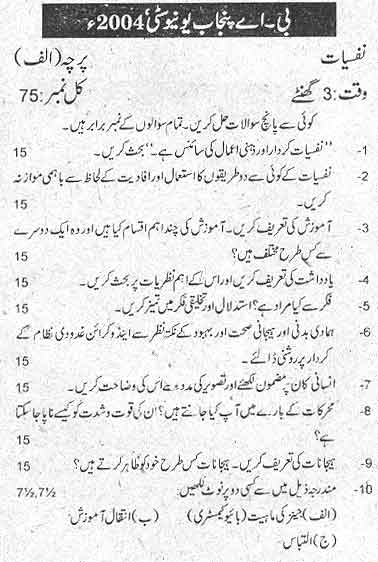 بی۔ اے پنجاب یونیورسٹی 2004ء
نفسیات پرچہ (الف)
وقت: 3 گھنٹے کل نمبر: 75
کوئی سے پانچ سوالات حل کریں۔ تمام سوالوں کے نمبر برابر ہیں۔
1- ’’نفسیات کردار اور ذہنی اعمال کی سائنس ہے۔‘‘ بحث کریں۔ 15
2- نفسیات کے کوئی سے دو طریقوں کا استعمال اور افادیت کے لحاظ سے باہمی موازنہ
کریں۔ 15
3- آموزش کی تعریف کریں۔ آموزش کی چند اہم اقسام کیا ہیں اور وہ ایک دوسرے
سے کس طرح مختلف ہیں؟ 15
4- یادداشت کی تعریف کریں اور اس کے اہم نظریات پر بحث کریں۔ 15
5- فکر سے کیا مراد ہے؟ استدلال اور تخلیقی فکر میں تمیز کریں۔ 15
6- ہماری بدنی اور ہیجانی صحت اور بہبود کے نکتہ نظر سے اینڈوکرائن غدودی نظام کے
کردار پر روشنی ڈالئے۔ 15
7- انسانی کان پر مضمون لکھئے اور تصویر کی مدد سے اس کی وضاحت کریں۔ 15
8- محرکات کے بارے میں آپ کیا جانتے ہیں؟ ان کی قوت و شدت کو کیسے ناپا جا سکتا
ہے؟ 15
9- ہیجانات کی تعریف کریں۔ ہیجانات کس طرح خود کو ظاہر کرتے ہیں؟ 15
10- مندرجہ ذیل میں سے کسی دو پر نوٹ لکھیں: 7½,7½
(الف) جینز کی ماہیت (بائیوکیمسٹری) (ب) انتقال آموزش
(ج) التباس